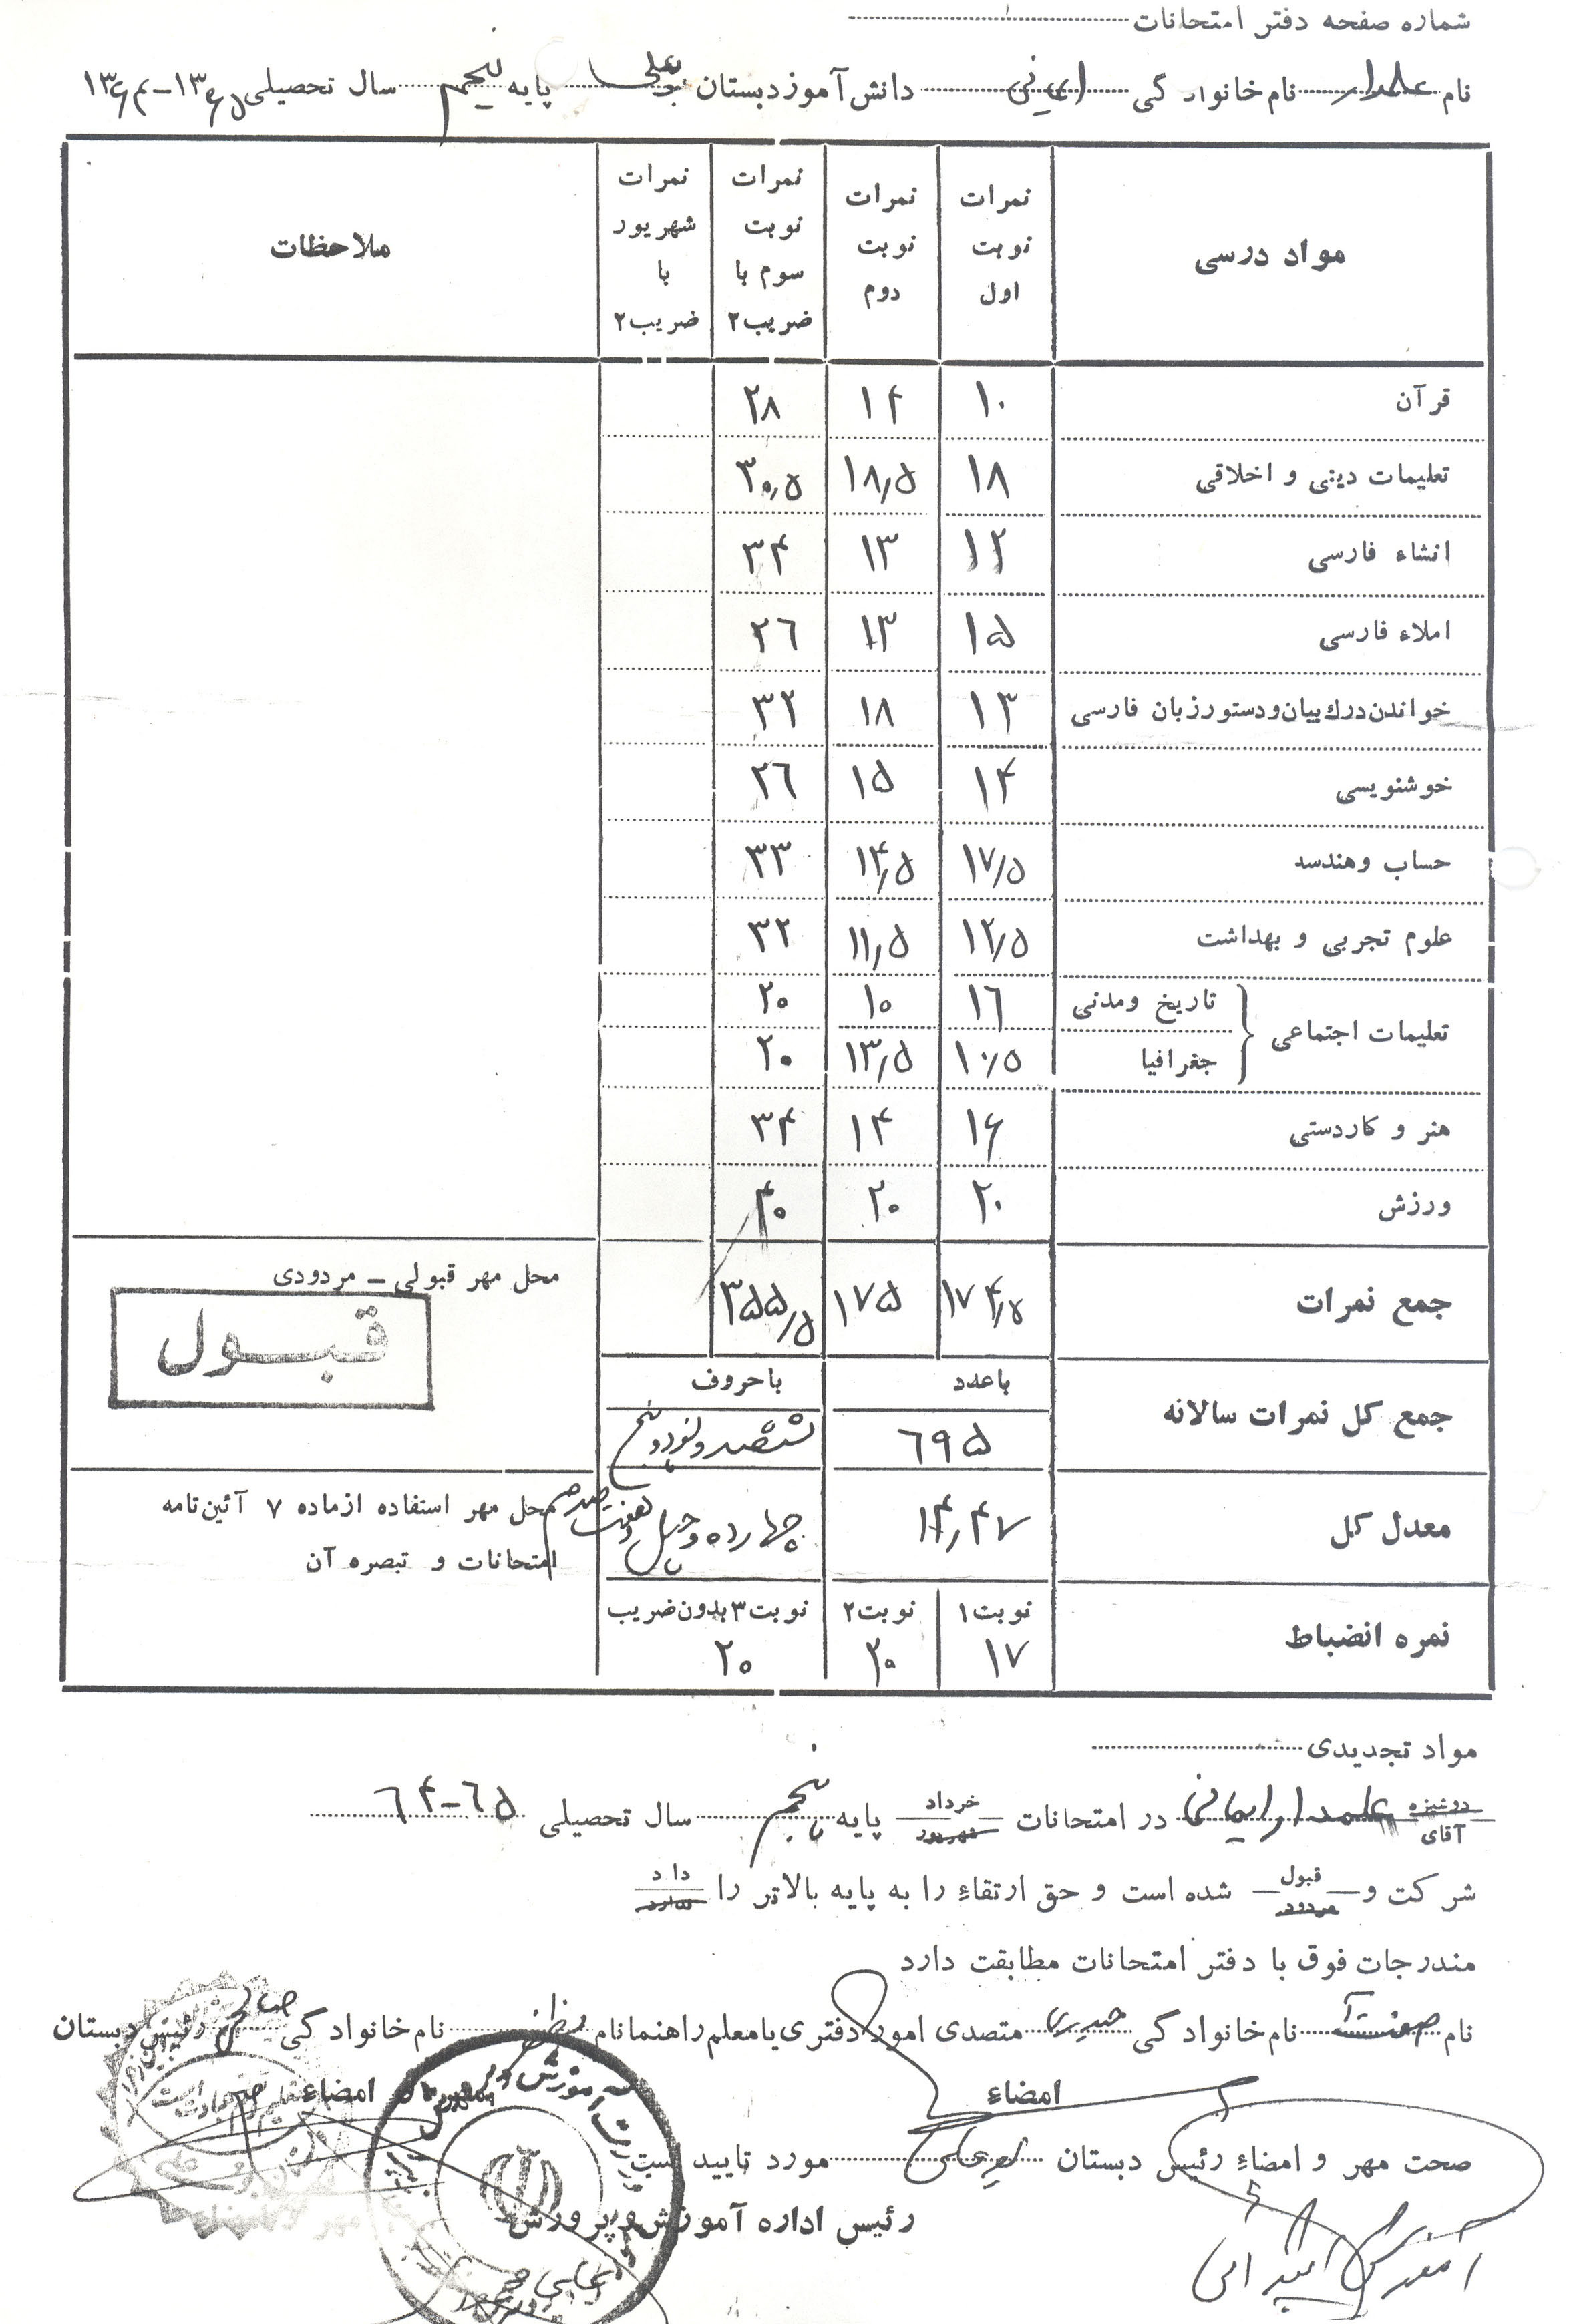 شماره صفحه دفتر امتحانات
نام علمدار نام خانوادگی ایمانی دانش‌آموز دبستان بوعلی پایه پنجم سال تحصیلی ۱۳۶۵-۱۳۶۴
مواد درسی نمرات نوبت اول نمرات نوبت دوم نمرات نوبت سوم با ضریب۲ نمرات شهریور با ضریب۲ ملاحظات
قرآن ۱۰ ۱۴ ۲۸
تعلیمات دینی و اخلاقی ۱۸ ۱۸٫۵ ۳۰٫۵
انشاء فارسی ۱۲ ۱۳ ۳۴
املاء فارسی ۱۵ ۱۳ ۲۶
خواندن درك بیان و دستور زبان فارسی ۱۳ ۱۸ ۳۲
خوشنویسی ۱۴ ۱۵ ۲۶
حساب و هندسه ۱۷/۵ ۱۴٫۵ ۳۳
علوم تجربی و بهداشت ۱۲/۵ ۱۱٫۵ ۳۲
تعلیمات اجتماعی
تاریخ و مدنی ۱۶ ۱۰ ۲۰
جغرافیا ۱۰/۵ ۱۳٫۵ ۲۰
هنر و کاردستی ۱۶ ۱۴ ۳۴
ورزش ۲۰ ۲۰ ۴۰
جمع نمرات ۱۷۴٫۵ ۱۷۵ ۳۵۵/۵
محل مهر قبولی - مردودی
قبول
جمع کل نمرات سالانه باعدد باحروف
۶۹۵ ششصد و نود و پنج
معدل کل ۱۴٫۴۷ چهارده و چهل و هفت صدم
محل مهر استفاده از ماده ۷ آئین‌نامه
امتحانات و تبصره آن
نمره انضباط نوبت۱ نوبت۲ نوبت۳ بدون ضریب
۱۷ ۲۰ ۲۰
مواد تجدیدی
دوشیزه آقای علمدار ایمانی در امتحانات خرداد شهریور پایه پنجم سال تحصیلی ۶۵-۶۴
شرکت و قبول مردود شده است و حق ارتقاء را به پایه بالاتر را دارد ندارد
مندرجات فوق با دفتر امتحانات مطابقت دارد
نام نام خانوادگی حیدری متصدی امور دفتری یا معلم راهنما نام نام خانوادگی رئیس دبستان
امضاء امضاء
صحت مهر و امضاء رئیس دبستان بوعلی مورد تایید است
رئیس اداره آموزش و پرورش